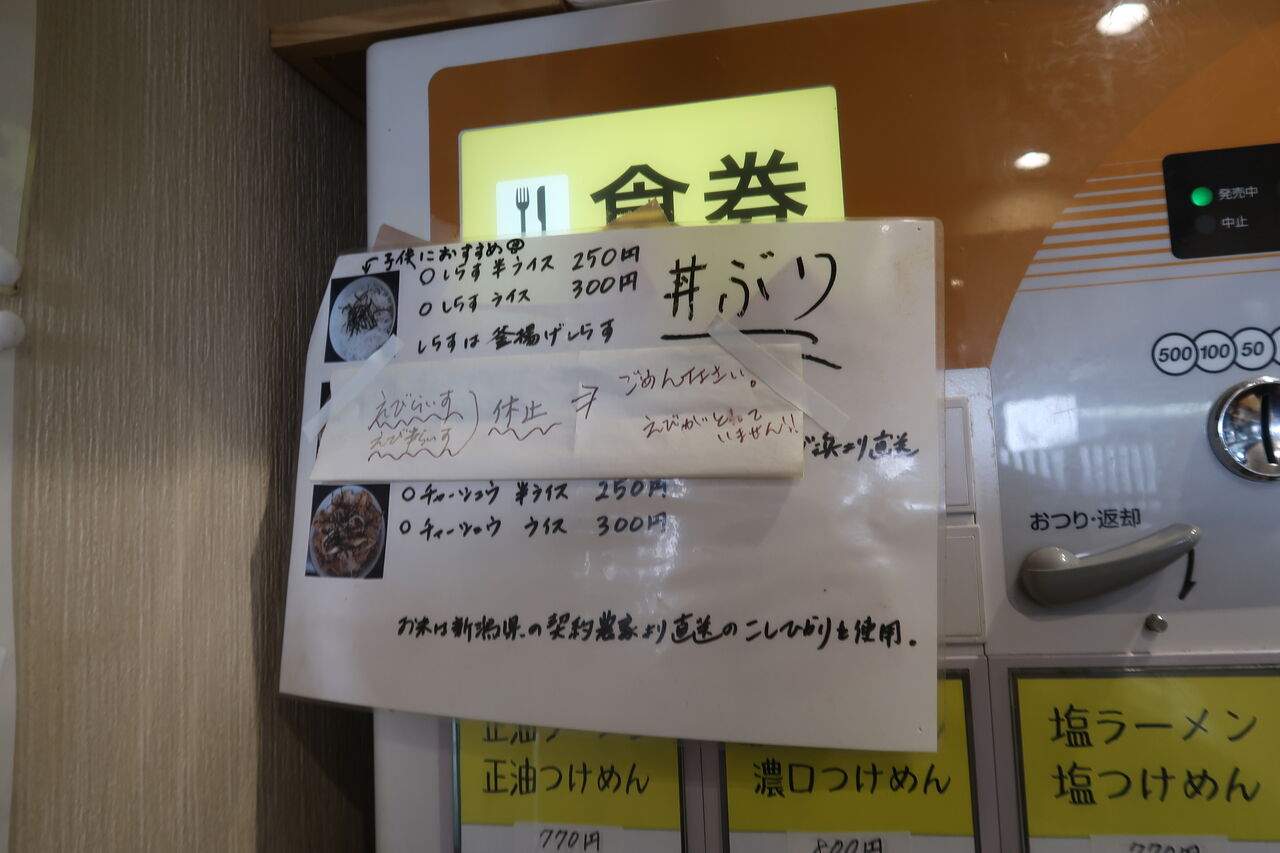 食券
発売中
中止
子供におすすめ
○しらす 半ライス 250円
○しらす ライス 300円
しらすは釜揚げしらす
丼ぶり
えびらいす
えび半らいす
休止
ごめんなさい。
えびがとれて
いません!!
浜より直送
○チャーシュウ 半ライス 250円
○チャーシュウ ライス 300円
お米は新潟県の契約農家より直送のこしひかりを使用。
500 100 50
おつり・返却
正油つけめん
770円
濃口つけめん
800円
塩ラーメン
塩つけめん
770円